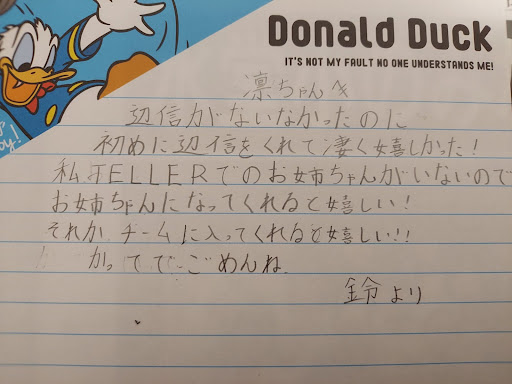 Donald Duck
IT'S NOT MY FAULT NO ONE UNDERSTANDS ME!
凛ちゃんへ
辺信がないなかったのに
初めに辺信をくれて凄く嬉しかった!
私JELLERでのお姉ちゃんがいないので
お姉ちゃんになってくれると嬉しい!
それかチームに入ってくれると嬉しい!!
かってでごめんね
鈴より